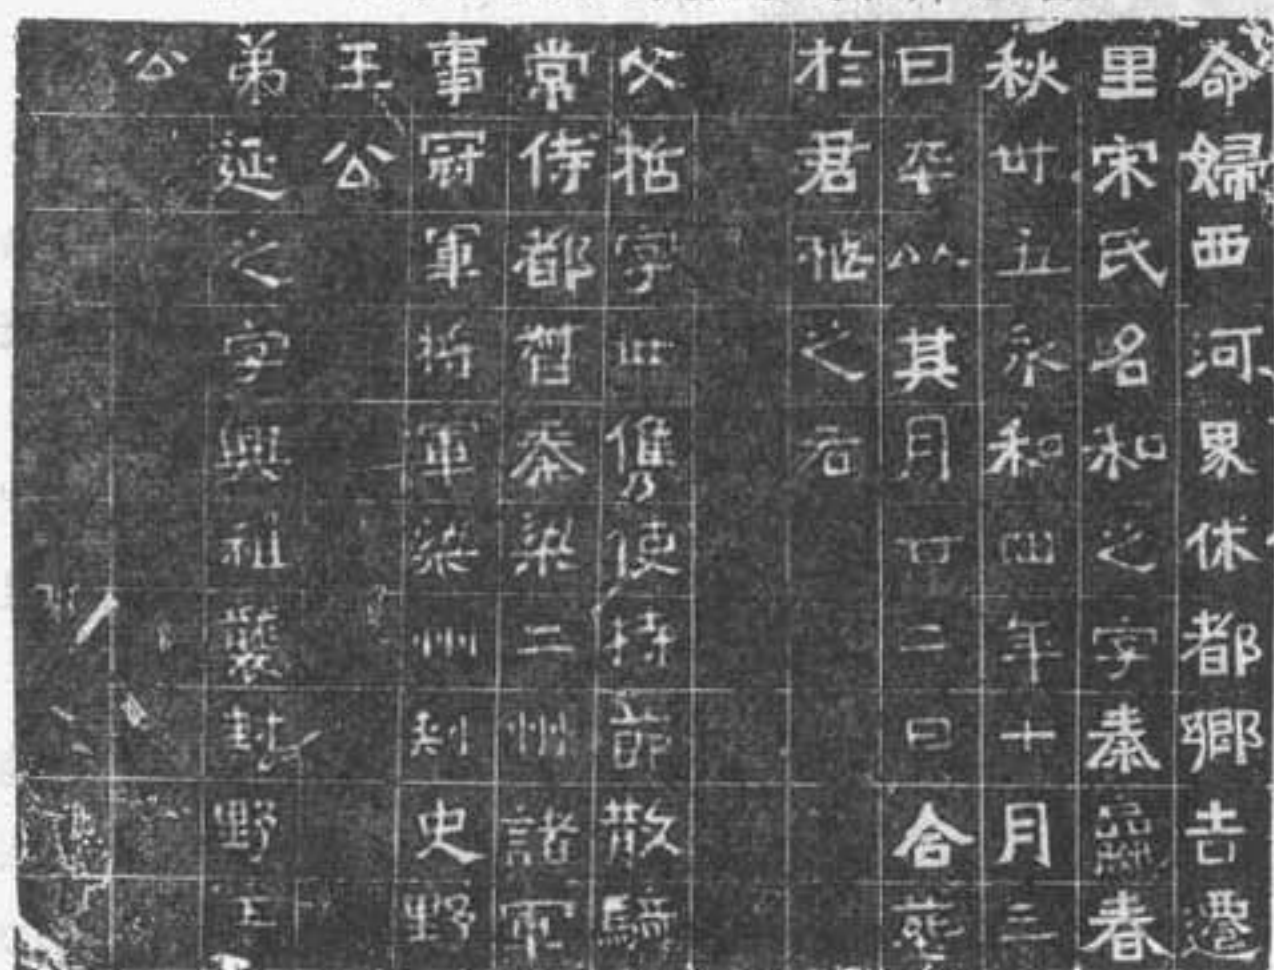 命婦西河界休都鄉吉遷
里宋氏名和之字秦嬴春
秋卅五永和四年十月三
日卒以其月廿二日合葬
於君柩之右
父哲字世儁使持節散騎
常侍都督秦梁二州諸軍
事冠軍將軍梁州刺史野
王公
弟延之字興祖襲封野王
公